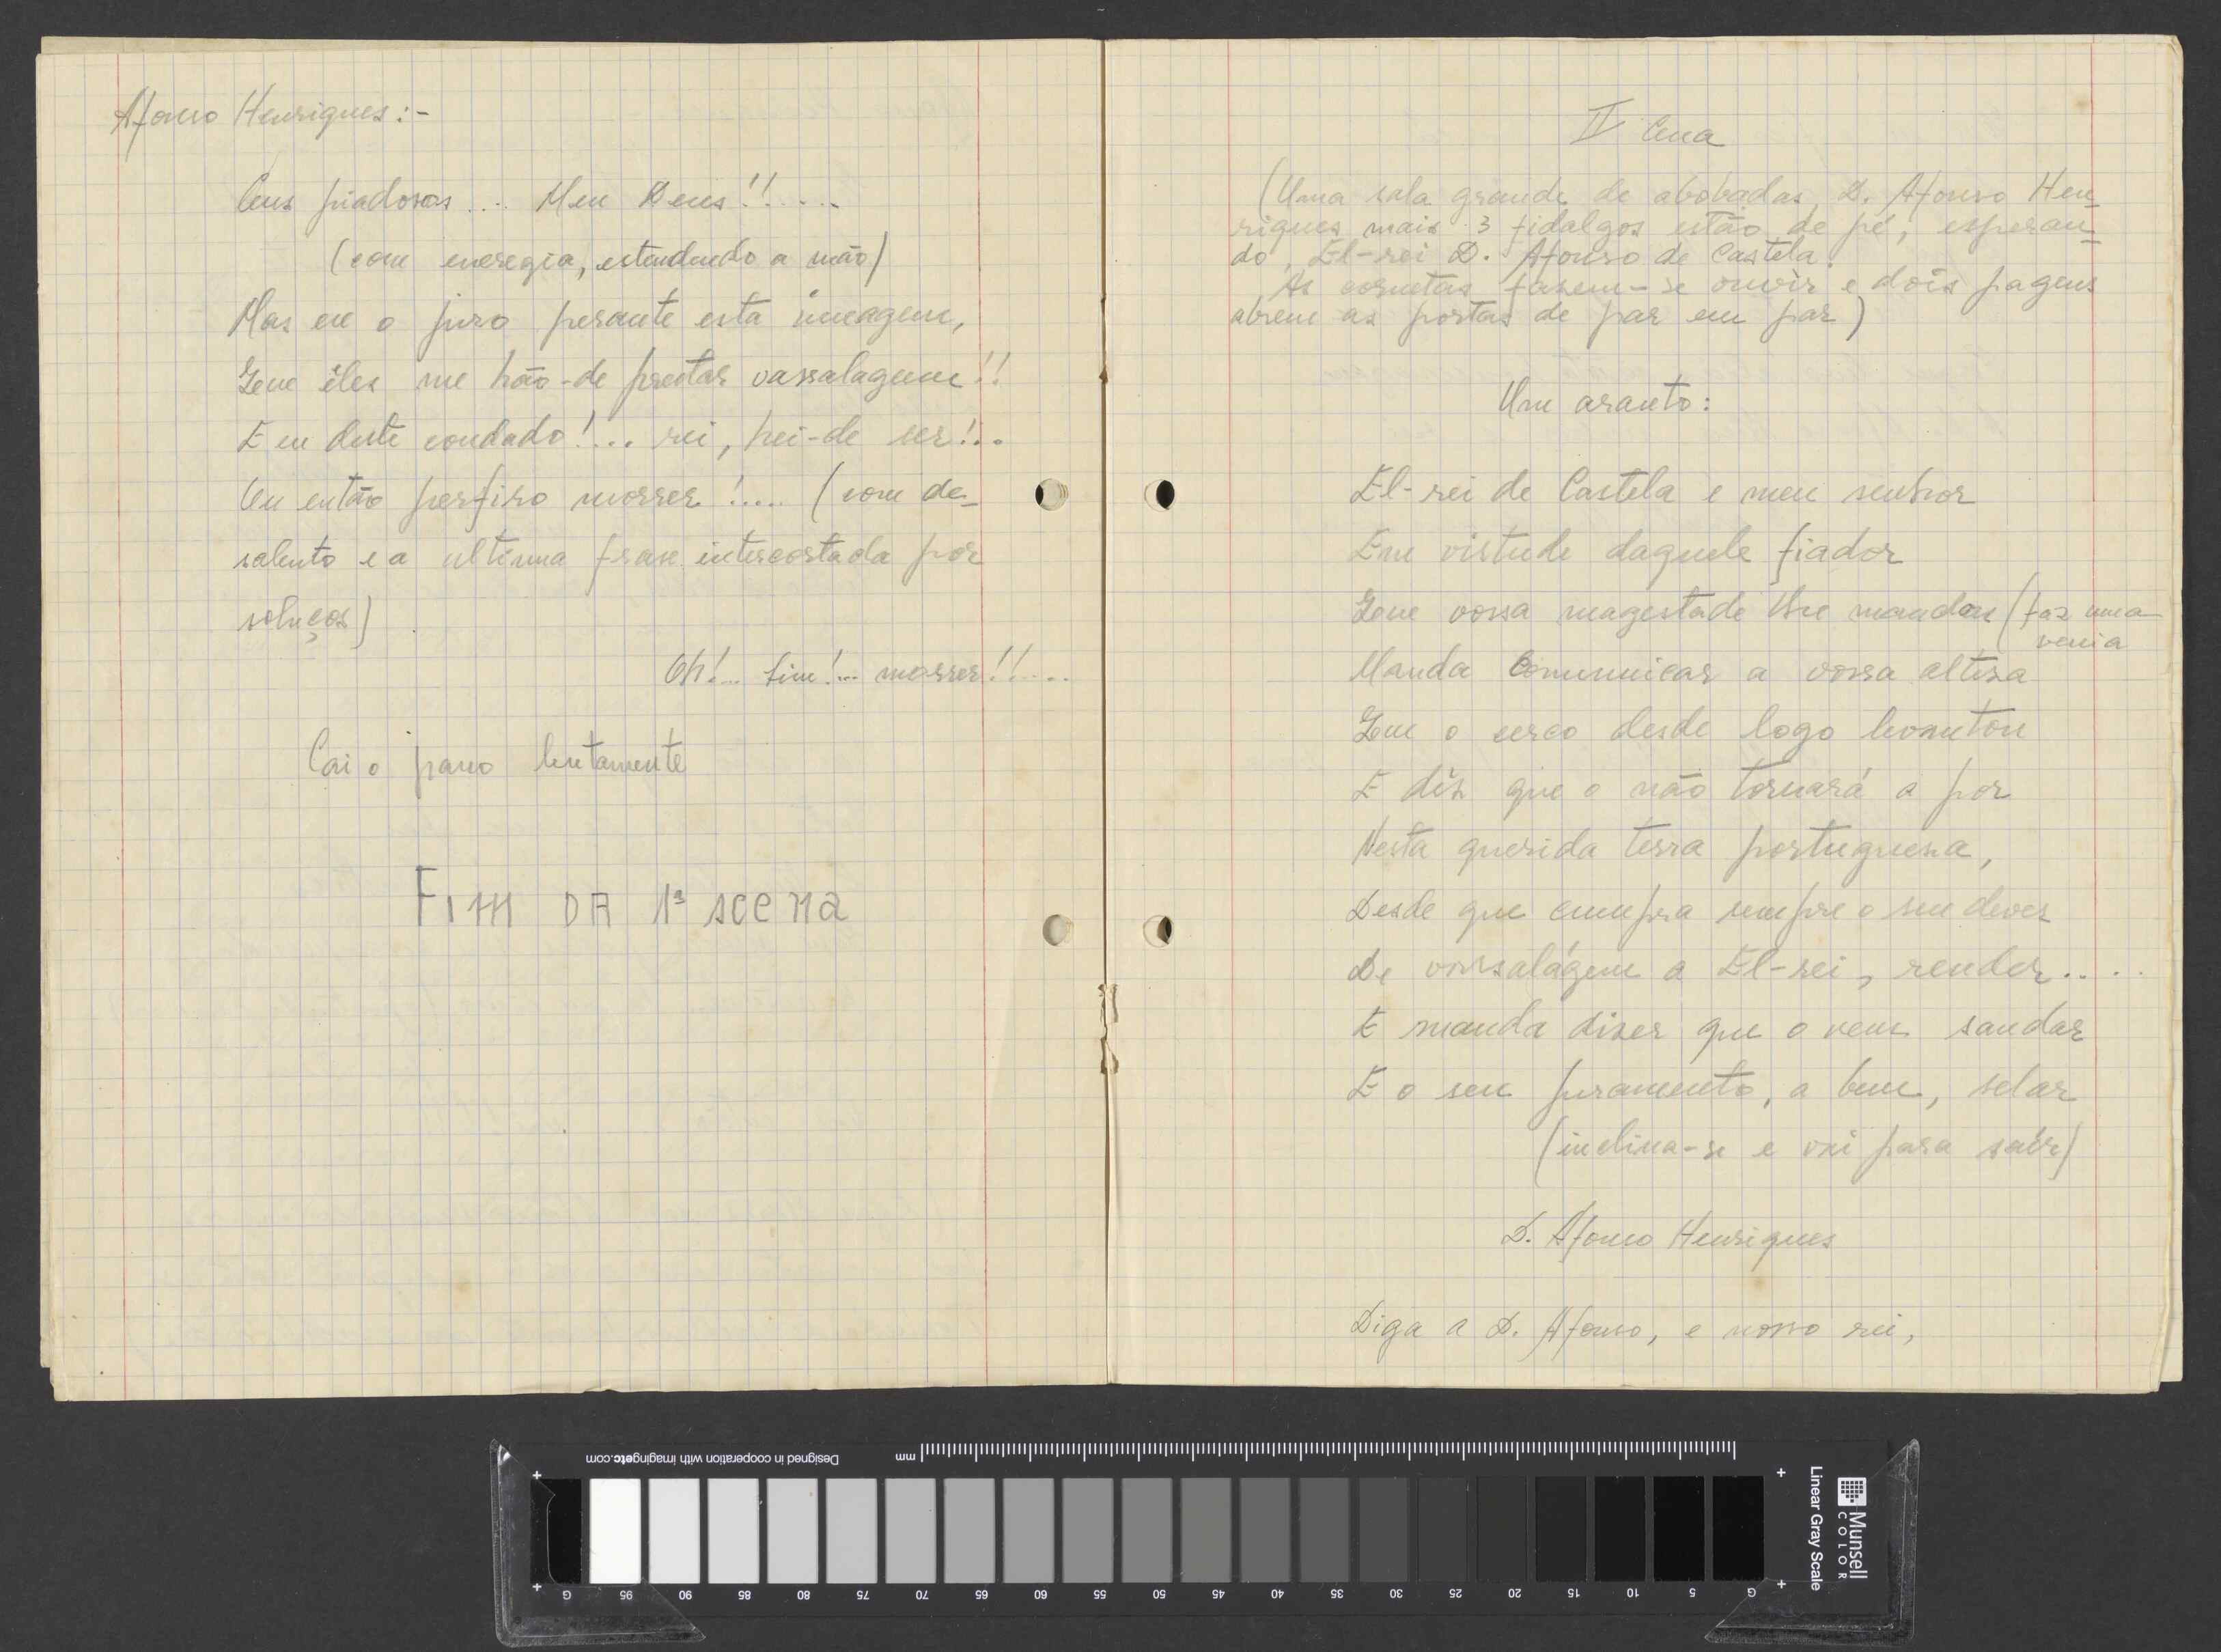 Afonso Henriques:-
Ceus piadosos.... Meu Deus!!.....
(com eneregia, estendendo a mão)
Mas eu o juro perante esta imagem,
Que êles me hão-de prestar vassalagem!!
E eu deste condado!... rei, hei-de ser!..
Ou então perfiro morrer!.... (com de-
salento e a ultima frase intercortada por
soluços)
Oh!... sim!... morrer!!.....
Cai o pano lentamente
FIM DA 1ª scena
II Cena
(Uma sala grande de abobadas, D. Afonso Hen-
riques mais 3 fidalgos estão de pé, esperan-
do, El-rei D. Afonso de Castela.
As cornetas fazem-se ouvir e dois pagens
abrem as portas de par em par)
Um arauto:
El-rei de Castela e meu senhor
Em virtude daquele fiador
Que vossa magestade lhe mandou (faz uma
venia
Manda comunicar a vossa alteza
Que o cerco desde logo levantou
E diz que o não tornará a por
Nesta querida terra portuguesa,
Desde que cumpra sempre o seu dever
De vassalágem a El-rei, render....
E manda dizer que o vem saudar
E o seu juramento, a bem, selar
(inclina-se e vai para saír)
D. Afonso Henriques
Diga a D. Afonso, e nosso rei,
Designed in cooperation with imagingetc.com
mm
Munsell
COLOR
Linear Gray Scale
G 95 90 85 80 75 70 65 60 55 50 45 40 35 30 25 20 15 10 5 G